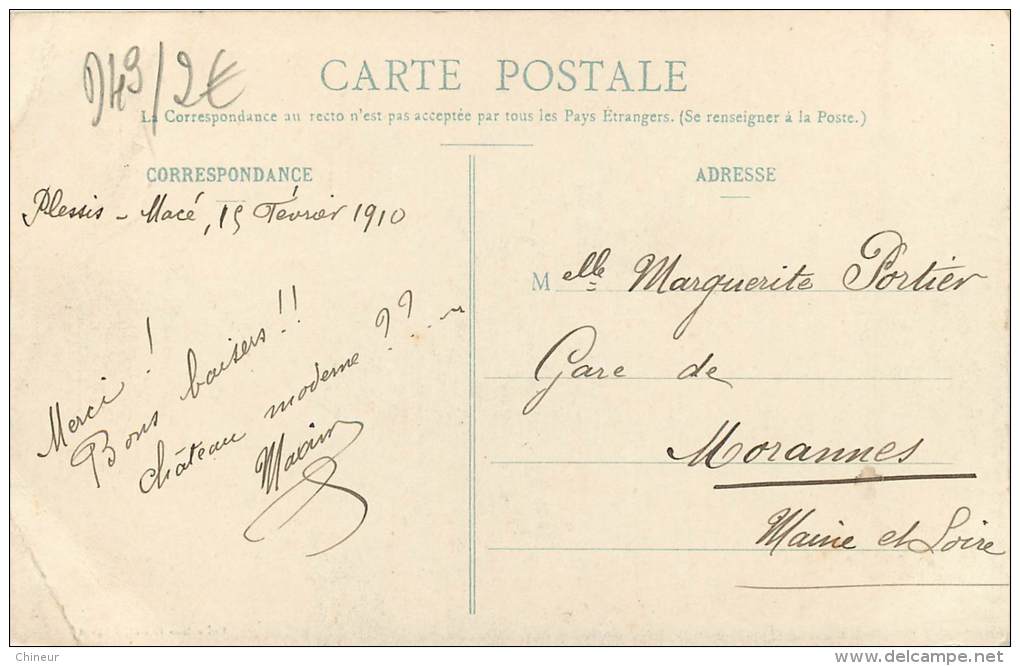 D49/2€
CARTE POSTALE
La Correspondance au recto n'est pas acceptée par tous les Pays Étrangers. (Se renseigner à la Poste.)
CORRESPONDANCE
Plessis - Macé, 15 Février 1910
Merci !
Bons baisers !!
château moderne ??....
ADRESSE
Melle Marguerite Portier
Gare de
Morannes
Maine et Loire
Chineur
http://www.delcampe.net